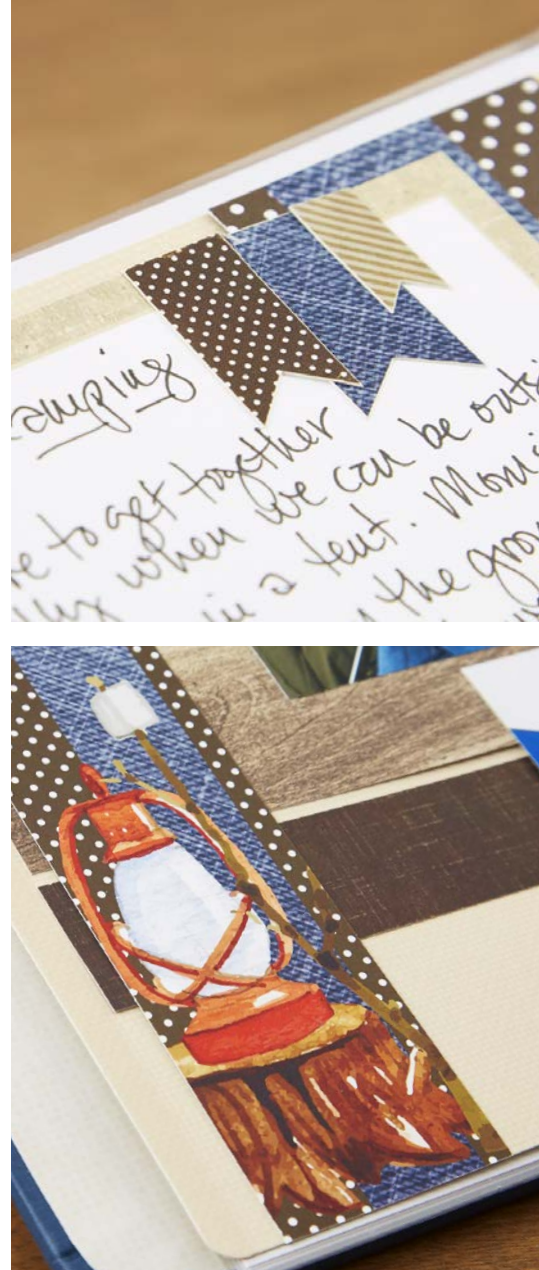 amping
e to get together
lly when we can be outsi
in a tent. Mom
the grou